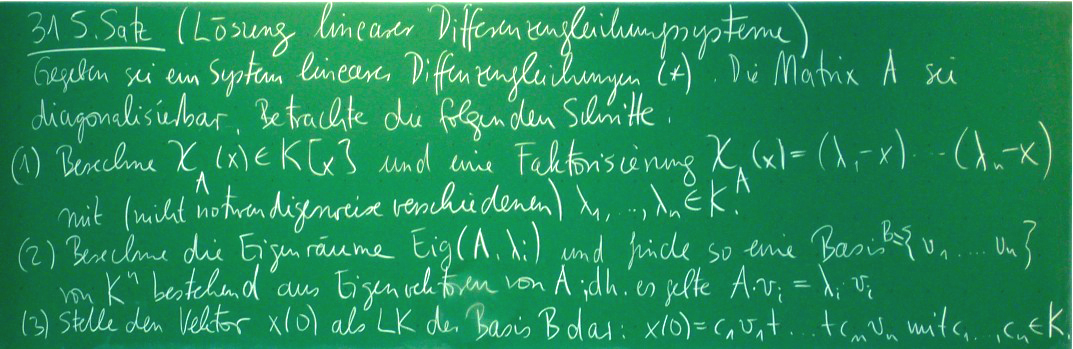 31 5. Satz (Lösung linearer Differenzengleichungssysteme)
Gegeben sei ein System linearer Differenzengleichungen (*). Die Matrix A sei
diagonalisierbar. Betrachte die folgenden Schritte.
(1) Berechne χ_A(x) ∈ K[x] und eine Faktorisierung χ_A(x) = (λ₁-x) ··· (λₙ-x)
mit (nicht notwendigerweise verschiedenen) λ₁, ..., λₙ ∈ K.
(2) Berechne die Eigenräume Eig(A, λᵢ) und finde so eine Basis B={v₁ .... vₙ}
von Kⁿ bestehend aus Eigenvektoren von A; dh. es gelte A·vᵢ = λᵢ vᵢ
(3) Stelle den Vektor x(0) als LK der Basis B dar: x(0) = c₁v₁+ ... + cₙvₙ mit c₁, ..., cₙ ∈ K.